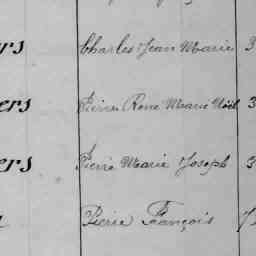 ers Charles Jean Marie 3
ers Pierre René Marie Noël 3
ers Pierre Marie Joseph 3
Pierre François